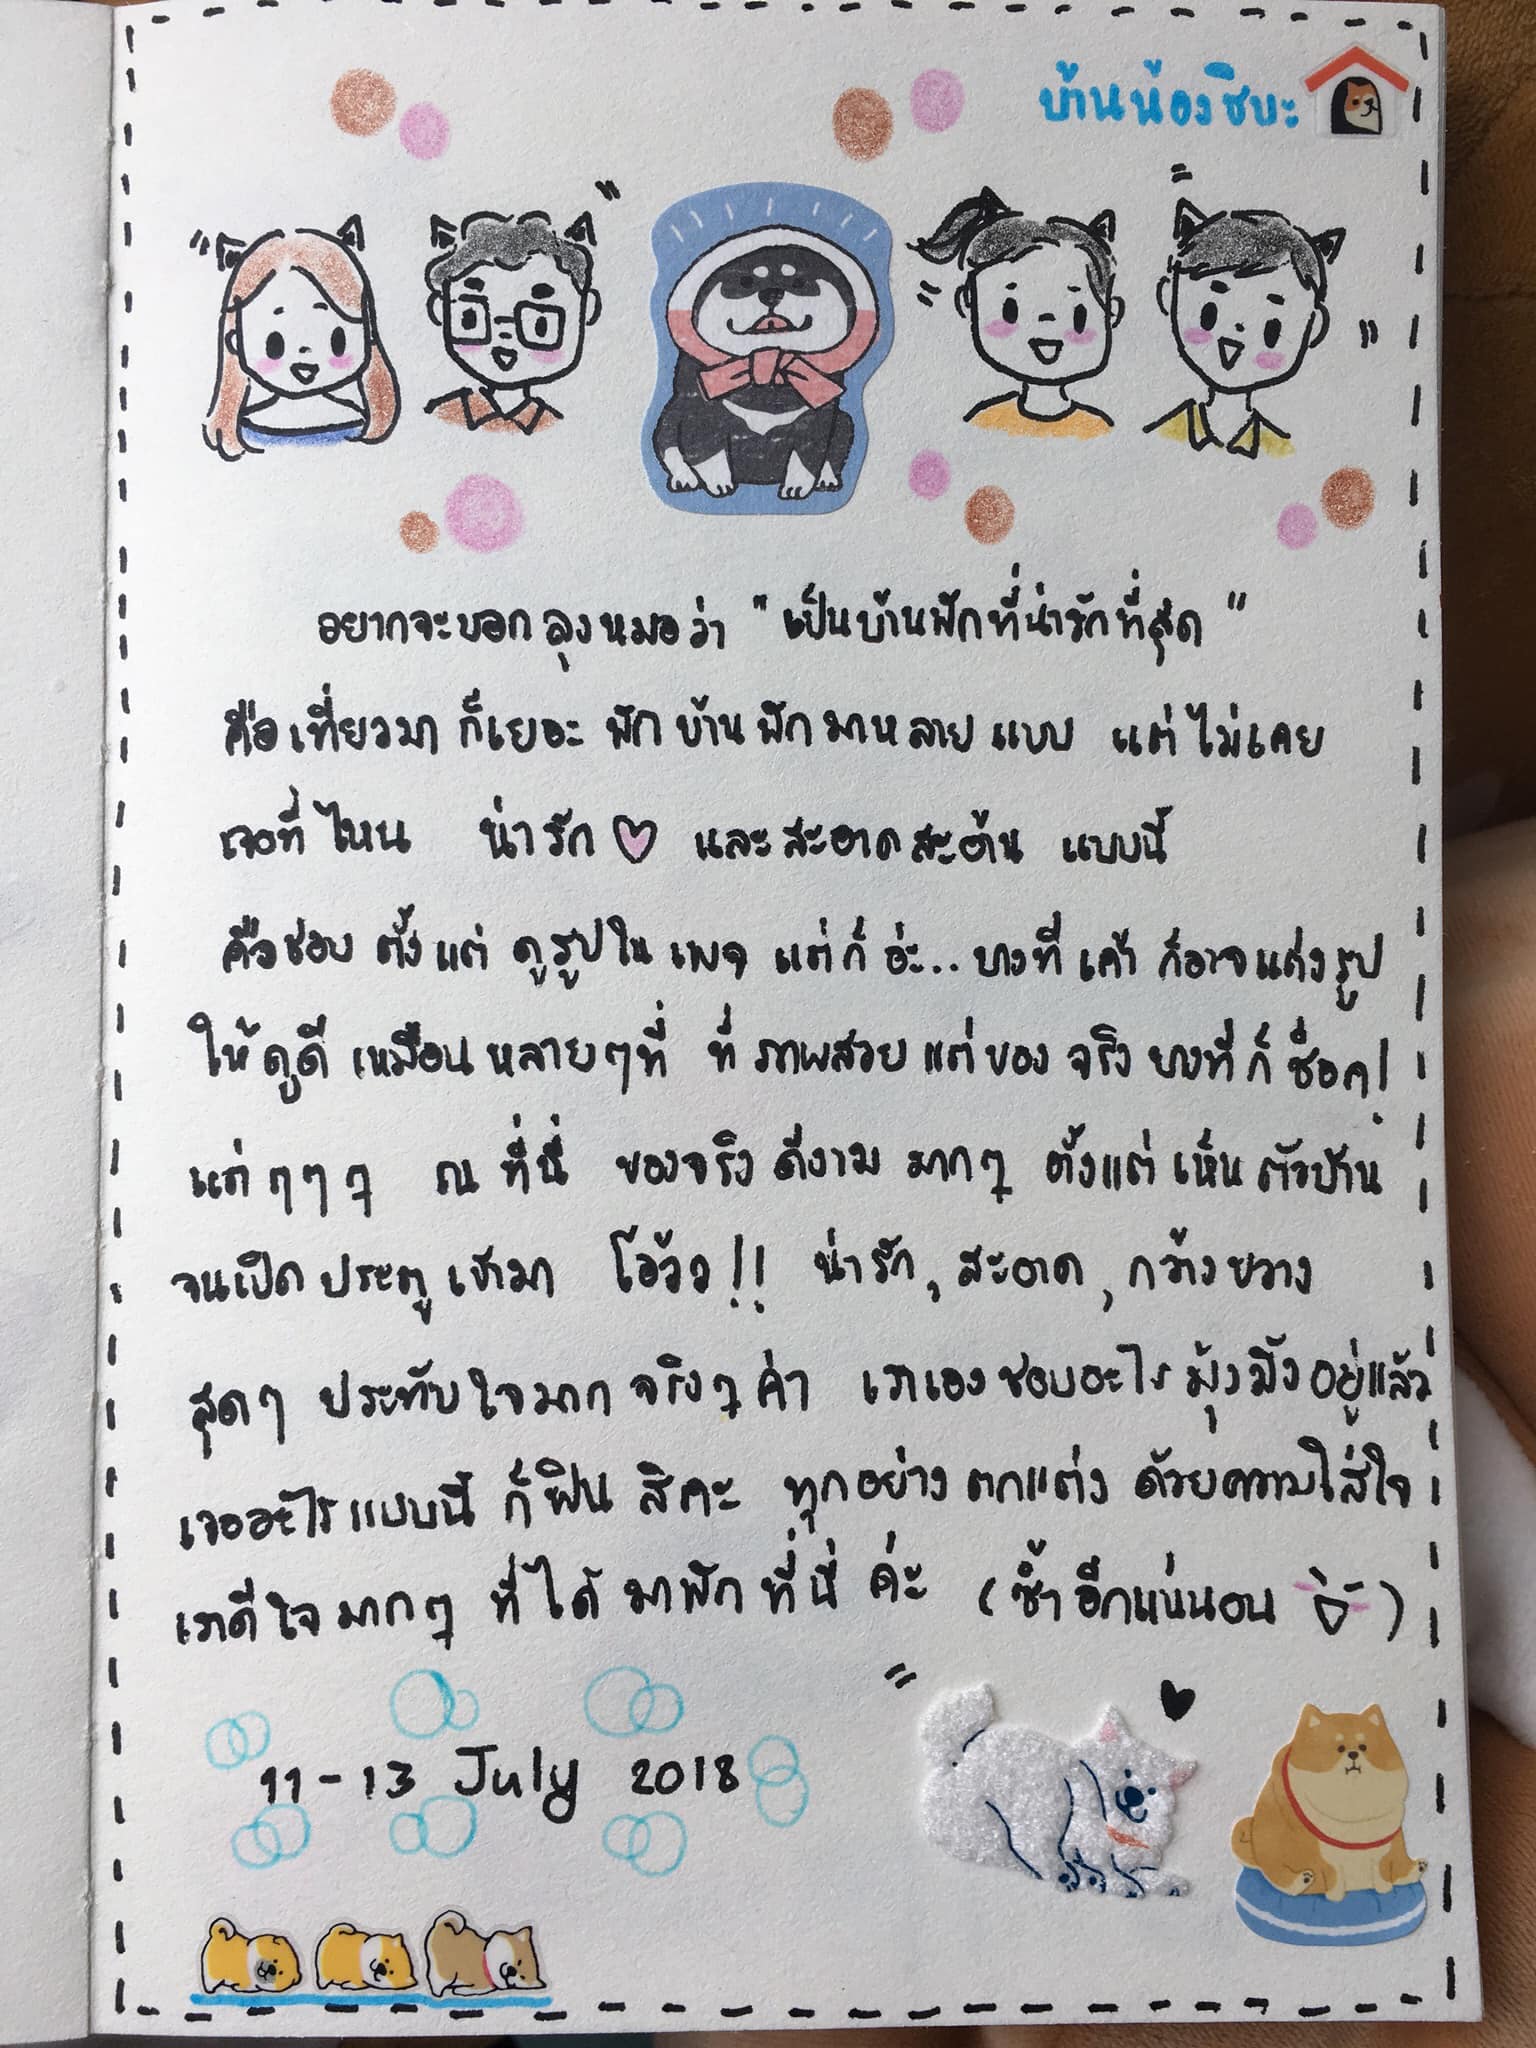 บ้านน้องชิบะ
อยากจะบอกลุงหมอว่า "เป็นบ้านพักที่น่ารักที่สุด"
คือเที่ยวมาก็เยอะ พักบ้านพักมาหลายแบบ แต่ไม่เคย
เจอที่ไหน น่ารัก ♡ และสะอาดสะอ้าน แบบนี้
คือชอบ ตั้งแต่ ดูรูปใน เพจ แต่ก็ อ่ะ.. บางที่ เค้า ก็อาจแต่งรูป
ให้ดูดี เหมือนหลายๆที่ ที่ ภาพสวย แต่ของ จริง บางที่ ก็ ช็อค!
แต่ๆๆๆ ณ ที่นี่ ของจริงดีงาม มากๆ ตั้งแต่เห็นตัวบ้าน
จนเปิดประตูเข้ามา โอ้วว!! น่ารัก, สะอาด, กว้างขวาง
สุดๆ ประทับใจมาก จริงๆค่า เราเองชอบอะไรมุ้งมิ้งอยู่แล้ว
เจออะไรแบบนี้ ก็ฟิน สิคะ ทุกอย่าง ตกแต่ง ด้วยความใส่ใจ
เราดีใจมากๆ ที่ได้ มาพัก ที่นี่ ค่ะ (ซ้ำอีกแน่นอน )
11-13 July 2018